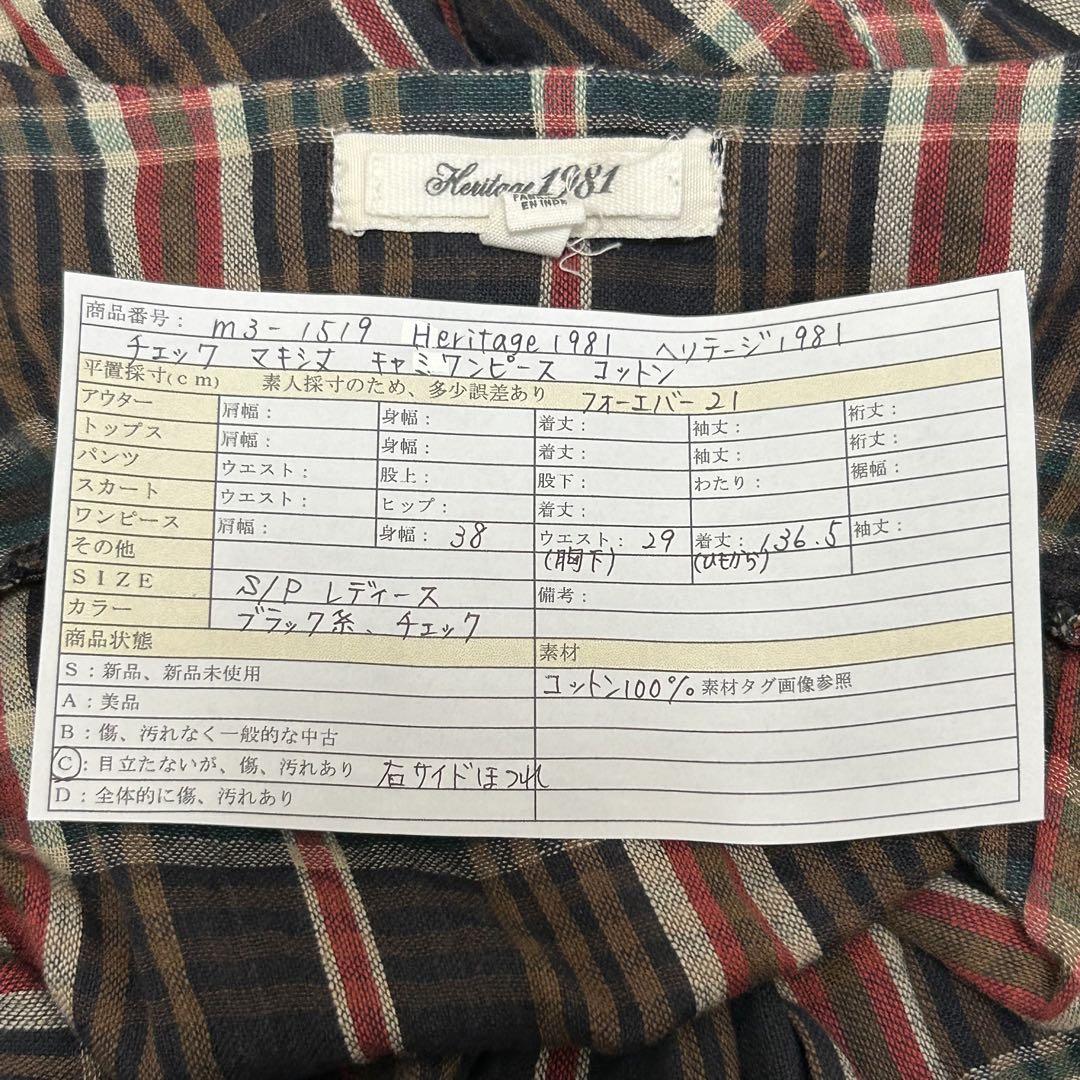 Heritage 1981
EN INDE
商品番号： m3-1519 Heritage 1981 ヘリテージ1981
チェック マキシ丈 キャミワンピース コットン
平置採寸(cm) 素人採寸のため、多少誤差あり フォーエバー21
アウター 肩幅： 身幅： 着丈： 袖丈： 裄丈：
トップス 肩幅： 身幅： 着丈： 袖丈： 裄丈：
パンツ ウエスト： 股上： 股下： わたり： 裾幅：
スカート ウエスト： ヒップ： 着丈：
ワンピース 肩幅： 身幅： 38 ウエスト： 29 着丈： 136.5 袖丈：
その他 (胸下) (ひもから)
SIZE S/P レディース 備考：
カラー ブラック系、チェック
商品状態 素材
S：新品、新品未使用 コットン100% 素材タグ画像参照
A：美品
B：傷、汚れなく一般的な中古
C：目立たないが、傷、汚れあり 右サイドほつれ
D：全体的に傷、汚れあり